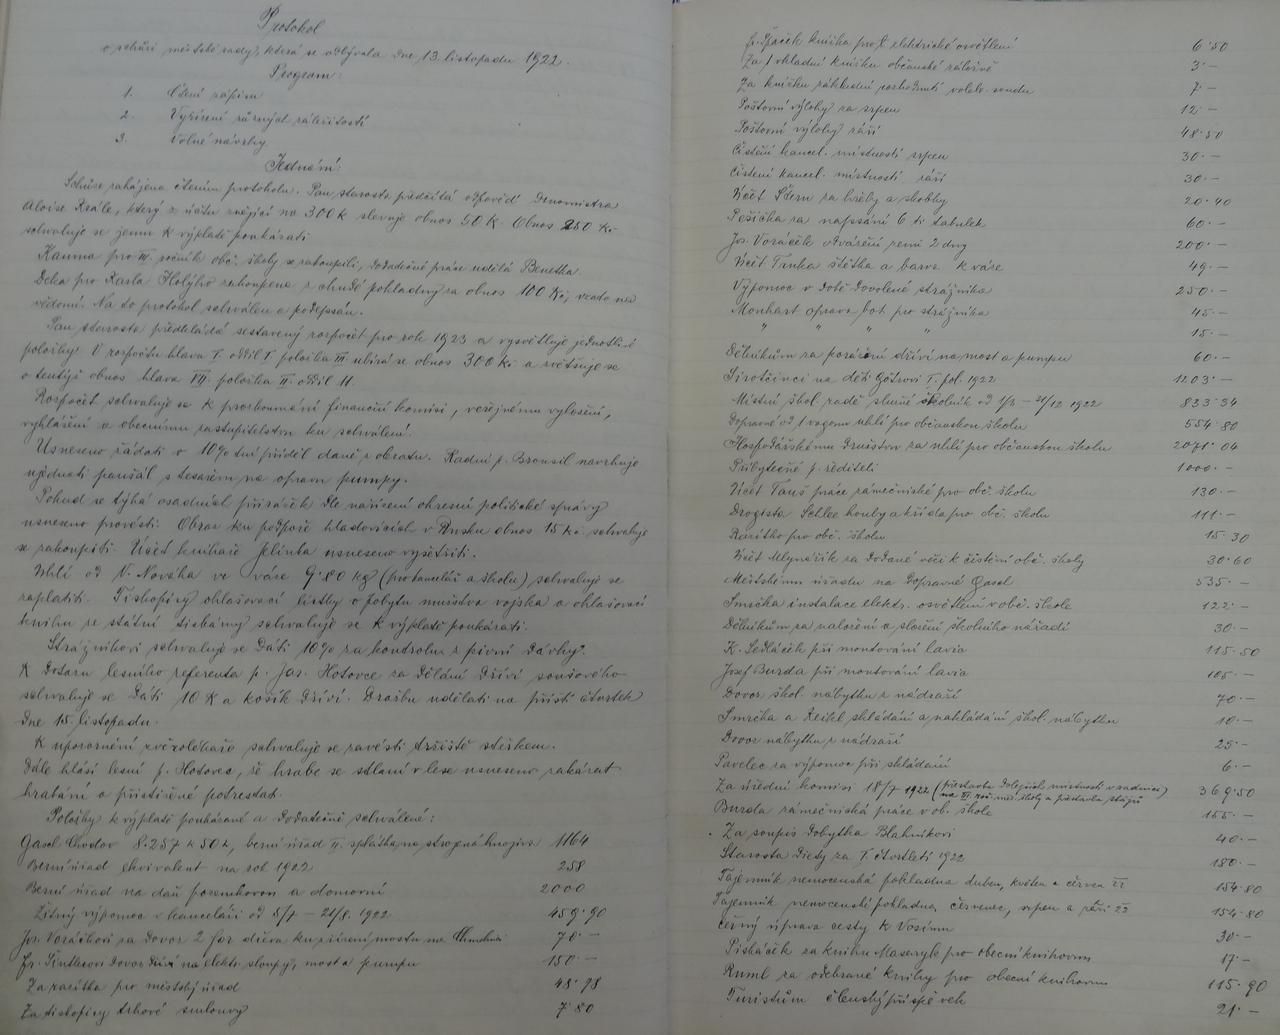 Protokol
o schůzi městské rady, která se odbývala dne 13. listopadu 1922.
Program:
1. Čtení zápisu
2. Vyřízení různých záležitostí
3. Volné návrhy
Jednání:
Schůze zahájena čtením protokolu. Pan starosta předčítá odpověď
Aloise Krále, který z účtu znějící na 300 K slevuje obnos 50 K. Obnos 250 Kč
schvaluje se jemu k výplatě poukázati.
Kamna pro III. ročník obč. školy se zakoupili, dodatečné práce udělá Benetka.
Deka pro Karla Holýho zakoupena z chudé pokladny za obnos 100 Kč, vzato na
vědomí. Na to protokol schválen a podepsán.
Pan starosta předkládá sestavený rozpočet pro rok 1923 a vysvětluje jednotlivé
položky. V rozpočtu hlava V. oddíl I. položka III. ubírá se obnos 300 Kč a zvětšuje se
o tentýž obnos hlava VII. položka II. oddíl 11.
Rozpočet schvaluje se k prozkoumání finanční komisi, veřejnému vyložení,
vyhlášení a obecnímu zastupitelstvu ku schválení.
Usneseno žádati o 10% ní příděl daně z obratu. Radní p. Brousil navrhuje
ujednati paušál s tesařem na opravu pumpy.
Pokud se týká osadních přirážek dle nařízení okresní politické správy
usneseno provésti. Obraz ku podpoře hladovících v Rusku obnos 15 Kč schvaluje
se zakoupiti. Účet knihaře Jelínka usneseno vyšetřiti.
Uhlí od V. Nováka ve váze 9·80 kg (pro kancelář a školu) schvaluje se
zaplatiti. Tiskopisy ohlašovací lístky o pobytu mužstva vojska a ohlašovací
knihu ze státní tiskárny schvaluje se k výplatě poukázati.
Strážníkovi schvaluje se dáti 10% za kontrolu z pivní dávky.
K dotazu lesního referenta p. Jos. Hotovce za dělání dříví soušového
schvaluje se dáti 10 K a košík dříví. Dražbu udělati na příští čtvrtek
dne 15. listopadu.
K upozornění zvěrolékaře schvaluje se zavésti tržiště stěskem.
Dále hlásí lesní p. Hotovec, že hrabe se stlaní v lese usneseno zakázat
hrabání a přistižené potrestat.
Položky k výplatě poukázané a dodatečně schválené:
Gasol Chodov 8.257 K 50 h, berní úřad II. splátka na stropná hnojiva 1164
Berní úřad ekvivalent na rok 1922 258
Berní úřad na daň pozemkovou a domovní 2000
Žitný výpomoc v kanceláři od 5/7 – 21/8. 1922 459·90
Jos. Voráčkovi za dovoz 2 for dřeva ku zřízení mostu na 70·–
Fr. Šintkerovi dovoz dříví na elektr. sloupy, most a pumpu 150·–
Za razítka pro městský úřad 48·78
Za tiskopisy trhové smlouvy 7·80
Fr. Špaček knížka pro elektrické osvětlení 6·50
Za 1 vkladní knížku občanské záložně 3·–
Za knížku základní rozhodnutí voleb. soudu 7·–
Poštovní výlohy za srpen 12·–
Poštovní výlohy září 48·50
Čistění kancel. místností srpen 30·–
Čistění kancel. místností září 30·–
Účet Štern za hřeby a skobky 20·40
Pešička za napsání 6 ti tabulek 60·–
Jos. Voráček odvážení zemi 2 dny 200·–
Účet Trnka štětka a barva k váze 49·–
Výpomoc v době dovolené strážníka 250·–
Monhart oprava bot pro strážníka 45·–
" " " " 15·–
Dělníkům za porážení dříví na most a pumpu 60·–
Sirotčinci na děti I. pol. 1922 1203·–
Místní škol. radě služné školník od 1/8 – 31/12 1922 833·34
Dopravné od 1 vagonu uhlí pro občanskou školu 554·80
Hospodářskému družstvu za uhlí pro občanskou školu 2071·04
Příbytečné p. řediteli 1000·–
Účet Tauš práce zámečnické pro obč. školu 130·–
Drogista Schlee houby a křída pro obč. školu 111·–
Razítko pro obč. školu 15·30
Účet Mlynařík za dodané věci k čistění obč. školy 30·60
Městskému úřadu na dopravné Gasol 535·–
Smrčka instalace elektr. osvětlení v obč. škole 122·–
Dělníkům za naložení a složení školního nářadí 30·–
K. Sedláček při montování lavic 115·50
Josef Burda při montování lavic 105·–
Dovoz škol. nábytku z nádraží 70·–
Smrčka a Reikl skládání a nakládání škol. nábytku 10·–
Dovoz nábytku z nádraží 25·–
Pavelec za výpomoc při skládání 6·–
Za úřední komisi 18/7 1922 (přestavba dolejších místností v radnici 369·50
na III. roč. měš. školy a přestavba chlívů)
Burda zámečnická práce v ob. škole 155·–
Za soupis dobytka Blahníkovi 40·–
Starosta diety za I. čtvrtletí 1922 180·–
Tajemník nemocenská pokladna duben, květen a červen 22 154·80
Tajemník nemocenská pokladna, červenec, srpen a září 22 154·80
Černý úprava cesty k Vosímu 30·–
Pískáček za knihu Masaryk pro obecní knihovnu 17·–
Ruml za odebrané knihy pro obecní knihovnu 115·90
Turistům členský příspěvek 21·–